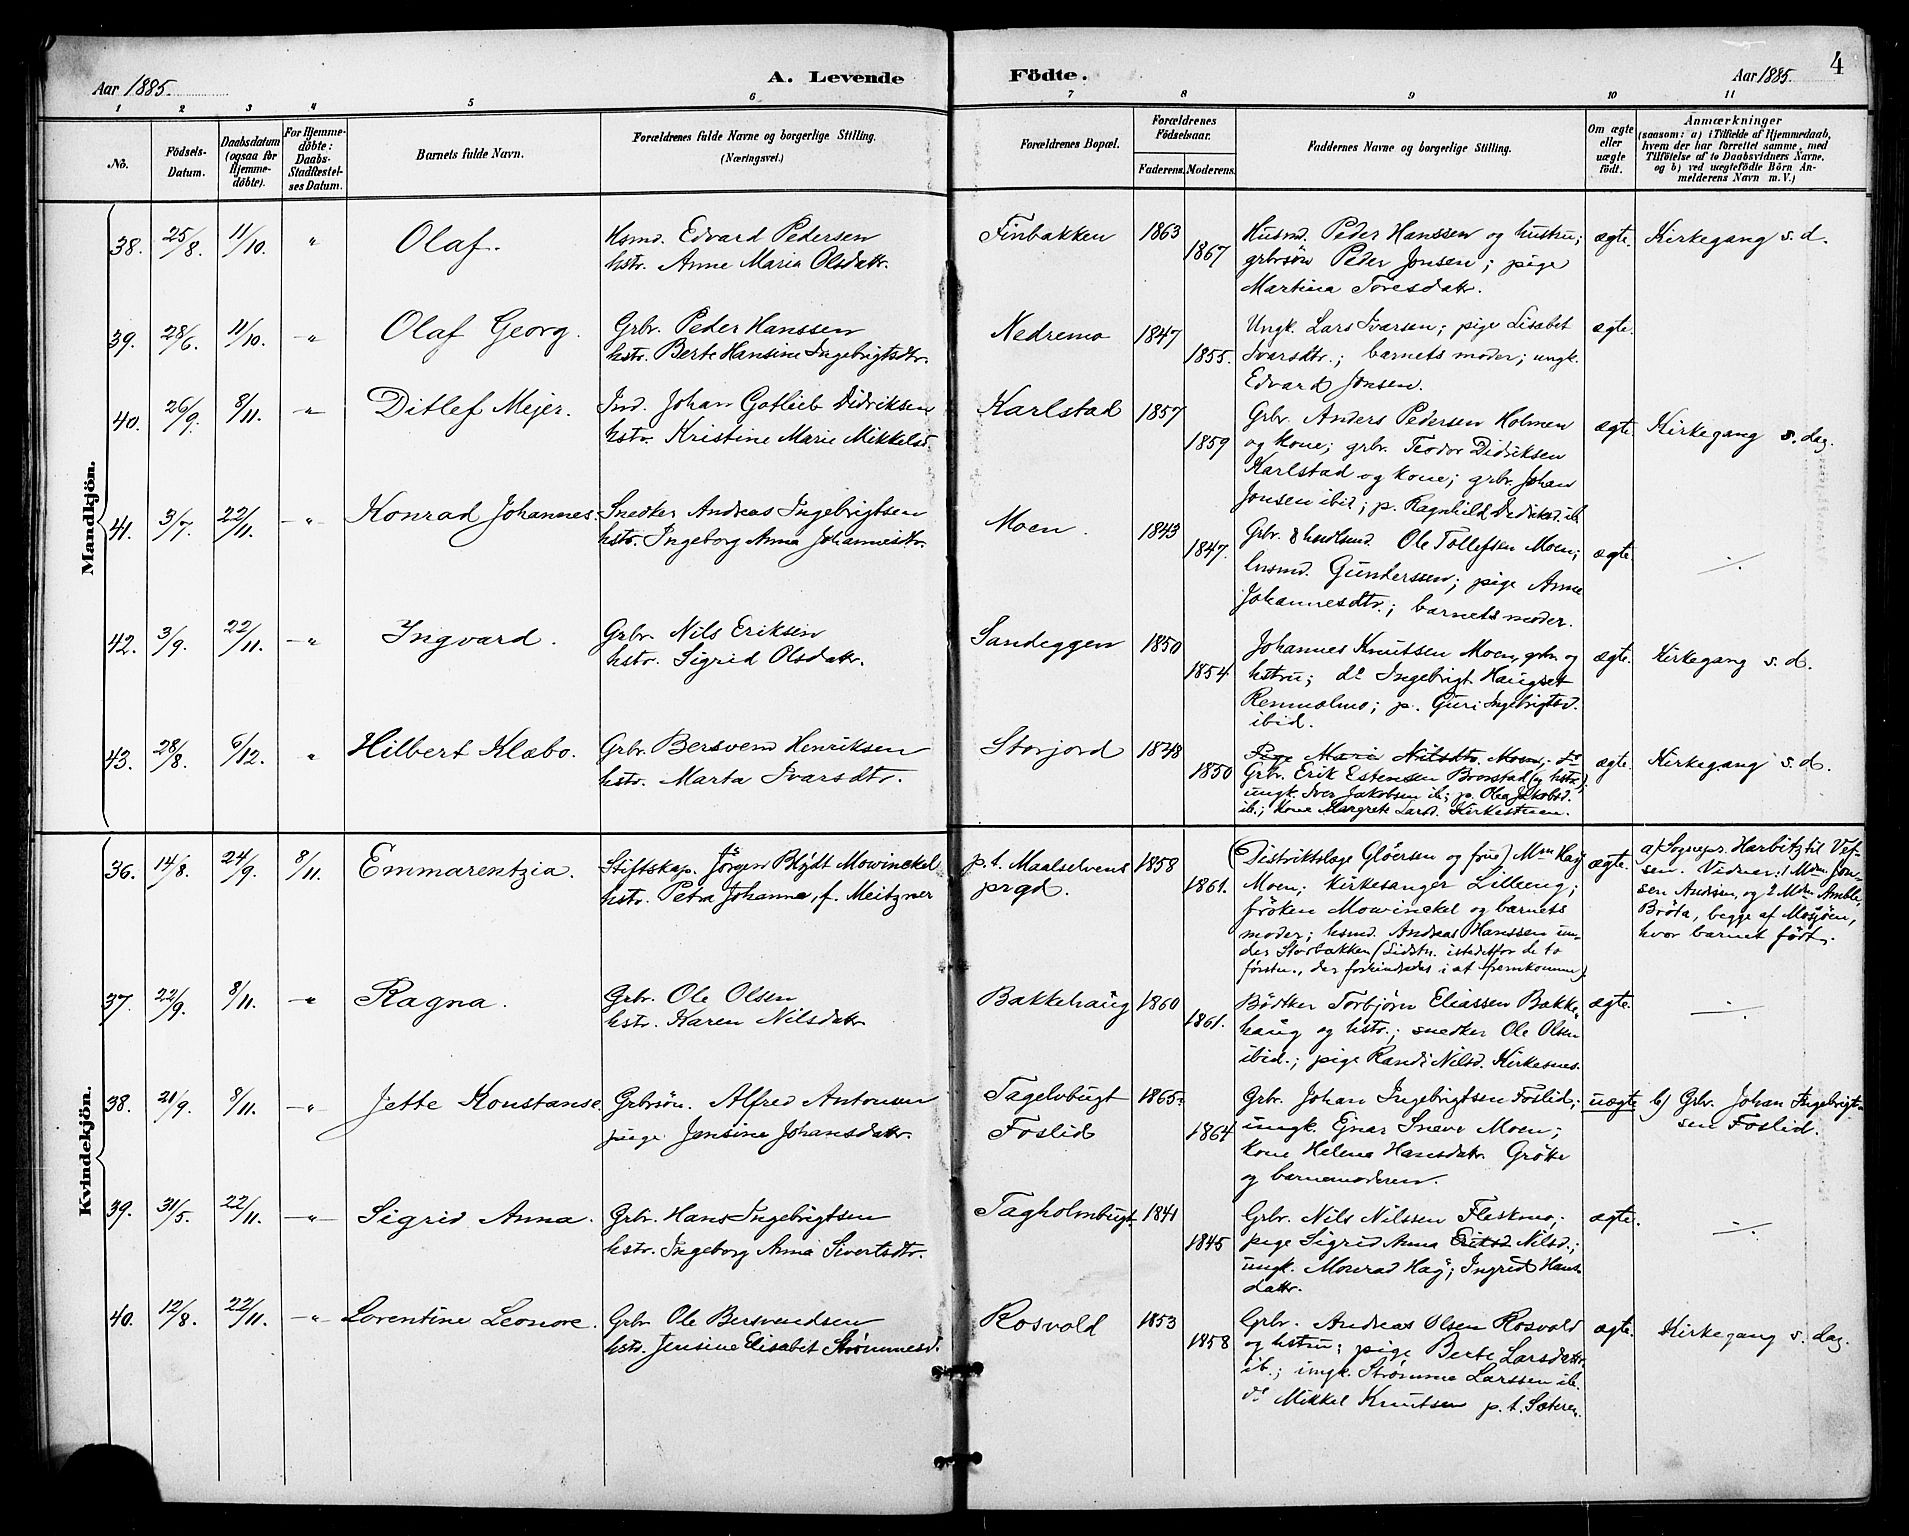 4
Aar 1885.
A. Levende
Födte.
Aar 1885
1 2 3 4 5 6 7 8 9 10 11
No.
Födsels-
Datum.
Daabsdatum
(ogsaa for
Hjemme-
döbte).
For Hjemme-
döbte:
Daabs-
Stadfæstel-
ses Datum.
Barnets fulde Navn.
Forældrenes fulde Navne og borgerlige Stilling.
(Næringsvei.)
Forældrenes Bopæl.
Forældrenes
Födselsaar.
Faderens. Moderens.
Faddernes Navne og borgerlige Stilling.
Om ægte
eller
uægte
födt.
Anmærkninger
(saasom: a) i Tilfælde af Hjemmedaab,
hvem der har forrettet samme, med
Tilföielse af to Daabsvidners Navne,
og b) ved uægtefödte Börn An-
melderens Navn m. V.)
Mandkjön.
38. 25/8. 11/10. " Olaf.
Hsmd. Edvard Pedersen
hstr. Anne Maria Olsdatr.
Finbakken 1863
1867
Husmd. Peder Hanssen og hustru;
grbrsøn Peder Jonsen; pige
Martina Toresdatr.
ægte. Kirkegang s. d.
39. 28/6. 11/10. " Olaf Georg.
Grbr. Peder Hanssen
hstr. Berte Hansine Ingebrigtsdtr.
Nedremo 1847
1855.
Ungk. Lars Ivarsen; pige Lisabet
Ivarsdtr.; barnets moder; ungk.
Edvard Jonsen.
ægte.
40. 26/9. 8/11. " Ditlef Mejer.
Ind. Johan Gotlieb Didriksen
hstr. Kristine Marie Mikkelsd.
Karlstad 1857
1859
Grbr. Anders Pedersen Holmen
og kone; grbr. Teodor Didriksen
Karlstad og kone; grbr. Johan
Jonsen ibid; p. Ragnhild Didriksd. ib.
ægte. Kirkegang s. dag.
41. 3/7. 22/11. " Konrad Johannes.
Snedker Andreas Ingebrigtsen
hstr. Ingeborg Anna Johannesdtr.
Moen. 1843
1847.
Grbr. & Ole Tollefsen Moen;
husmd. Gunderssen; pige Anne
Johannesdtr.; barnets moder.
ægte. ./.
42. 3/9. 22/11. " Ingvard.
Grbr. Nils Eriksen
hstr. Sigrid Olsdatr.
Sandeggen 1850
1854
Johannes Knutsen Moen, grbr. og
hstru; do Ingebrigt Haugset
Renmælmo; p. Guri Ingebrigtsd.
ibid.
ægte. Kirkegang s. d.
43. 28/8. 6/12. " Hilbert Klæbo.
Grbr. Bersvend Henriksen
hstr. Marta Ivarsdtr.
Storjord 1848
1850
Pige Mari Nilsdtr. Moen; do
Grbr. Erik Estensen Brorstad (og hstr.);
ungk. Iver Jakobsen ib.; p. Olea Jakobsd.
ib.; kone Margrete Larsd. Kirkestuen.
ægte. Kirkegang s. d.
Kvindekjön.
36. 14/8. 24/9. 8/11. Emmarentzia.
Stiftskap. Jörgen Blydt Mowinckel
hstr. Petra Johanne, f. Meitzner
p. t. Maalselvens
prgd.
1858
1861.
(Distriktslæge Gløersen og frue) Mon Hag
Moen; Kirkesanger Lilleeng;
frøken Mowinckel og barnets
moder; hsmd. Andreas Hanssen un-
der Storbakken (Sidstn. istedetfor de to
første., der forhindredes i at fremkomme).
ægte. a) Sognepr. Harbitz til Vef-
sen. Vidner: 1 Mdm. Jon-
sen Andåsen, og 2 Mdm Amble,
Brøta, begge af Mosjøen,
hvor barnet født.
37. 22/9. 8/11. " Ragna.
Grbr. Ole Olsen
hstr. Karen Nilsdatr
Bakkehaug 1860
1861.
Bødker Torbjørn Eliassen Bakke-
haug og hstr.; snedker Ole Olsen
ibid.; pige Randi Nilsd. Kirkesnes.
ægte. ./.
38. 21/9. 8/11. " Jette Konstanse.
Grbrsøn. Alfred Antonsen
pige Jensine Johansdatr.
Tagelvbugt
Foslid
1865
1864
Grbr. Johan Ingebrigtsen Foslid;
ungk. Ejnar Sneve Moen;
kone Helena Hansdatr. Grøtte
og barnemoderen.
uægte b) Grbr. Johan Ingebrigt-
sen Foslid.
39. 31/5. 22/11. " Sigrid Anna.
Grbr. Hans Ingebrigtsen
hstr. Ingeborg Anna Sivertsdtr.
Tagholmbugt 1841
1845
Grbr. Nils Nilssen Fleskmo;
pige Sigrid Anna Eriksd Nilsd.;
ungk. Monrad Hag; Ingrid Hans-
datr.
ægte. ./.
40. 12/8. 22/11. " Lorentine Leonore.
Grbr Ole Bersvendsen
hstr. Jensine Elisabet Strømmesd.
Rosvold 1853
1858
Grbr. Andreas Olsen Rosvold
og hstru; pige Berte Larsdatr.
ib.; ungk. Strømme Larssen ib.
do Mikkel Knutsen p. t. Sæteren.
ægte. Kirkegang s. dag.